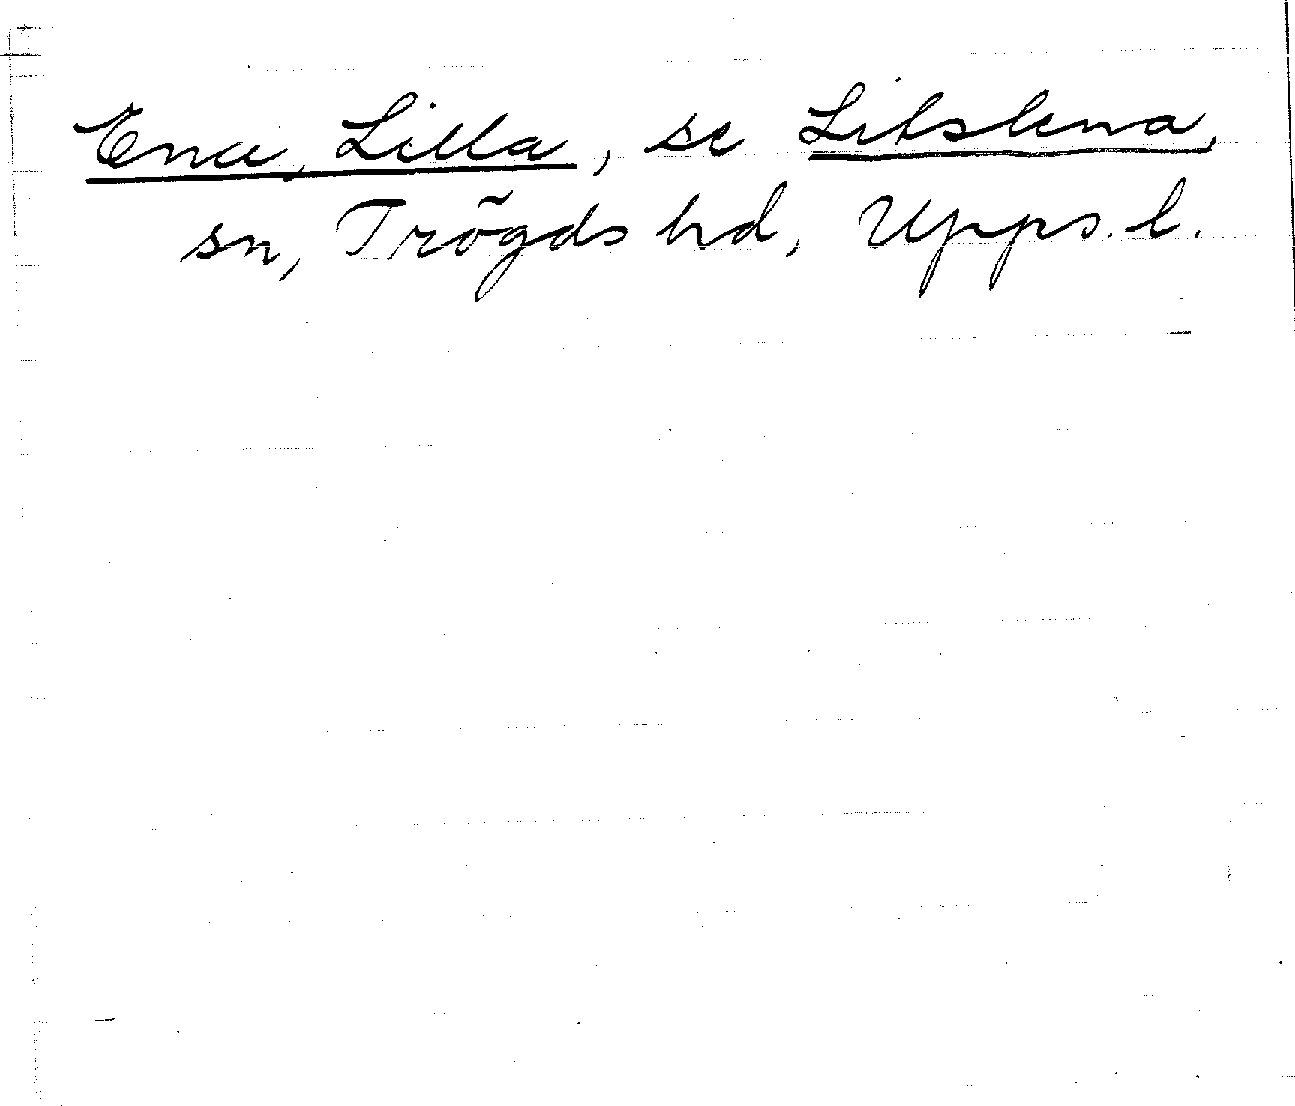 Ena, Lilla, se Litslena,
sn, Trögds hd, Upps. l.